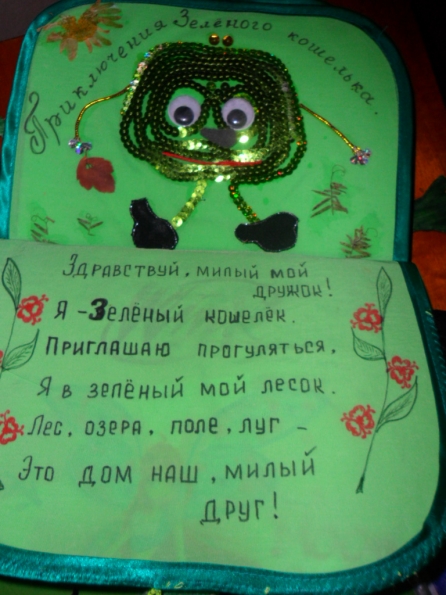 Приключения Зелёного кошелька.
Здравствуй, милый мой
дружок!
Я - Зелёный кошелёк.
Приглашаю прогуляться,
Я в зелёный мой лесок.
Лес, озера, поле, луг -
Это дом наш, милый
друг!